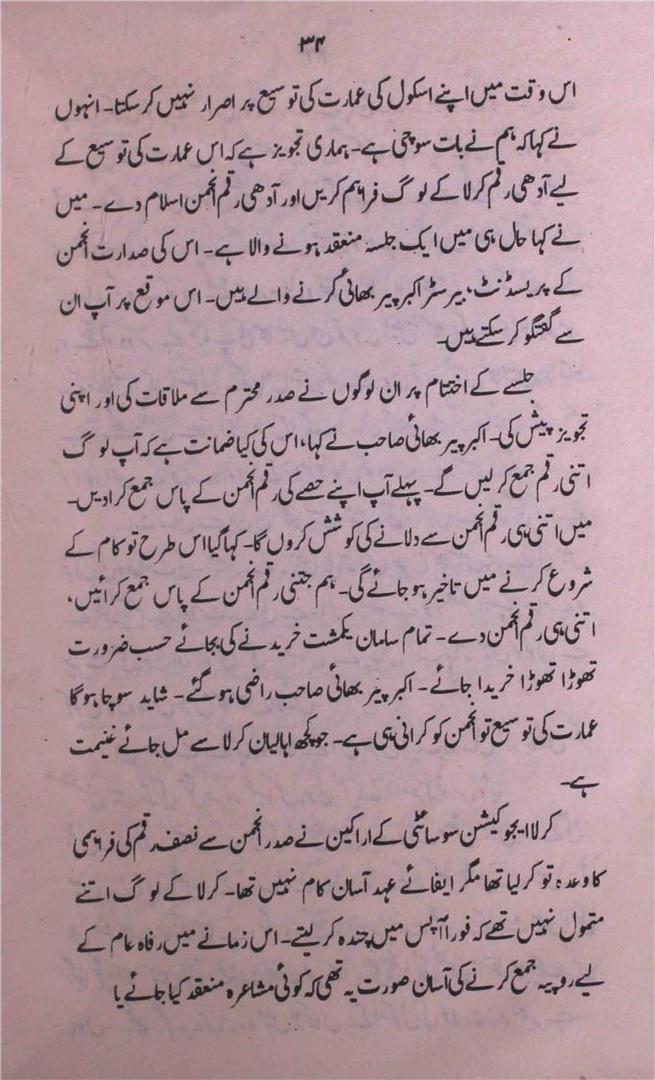 ۳۴
اس وقت میں اپنے اسکول کی عمارت کی توسیع پر اصرار نہیں کر سکتا۔ انہوں
نے کہا کہ ہم نے بات سوچی ہے۔ ہماری تجویز ہے کہ اس عمارت کی توسیع کے
لیے آدھی رقم کرلا کے لوگ فراہم کریں اور آدھی رقم انجمن اسلام دے۔ میں
نے کہا حال ہی میں ایک جلسہ منعقد ہونے والا ہے۔ اس کی صدارت انجمن
کے پریسڈنٹ، بیرسٹر اکبر پیر بھائی کرنے والے ہیں۔ اس موقع پر آپ ان
سے گفتگو کر سکتے ہیں۔
جلسے کے اختتام پر ان لوگوں نے صدر محترم سے ملاقات کی اور اپنی
تجویز پیش کی۔ اکبر پیر بھائی صاحب نے کہا، اس کی کیا ضمانت ہے کہ آپ لوگ
اتنی رقم جمع کر لیں گے۔ پہلے آپ اپنے حصے کی رقم انجمن کے پاس جمع کرا دیں۔
میں اتنی ہی رقم انجمن سے دلانے کی کوشش کروں گا۔ کہا گیا اس طرح تو کام کے
شروع کرنے میں تاخیر ہو جائے گی۔ ہم جتنی رقم انجمن کے پاس جمع کرائیں،
اتنی ہی رقم انجمن دے۔ تمام سامان یکمشت خریدنے کی بجائے حسب ضرورت
تھوڑا تھوڑا خریدا جائے۔ اکبر پیر بھائی صاحب راضی ہو گئے۔ شاید سوچا ہوگا
عمارت کی توسیع تو انجمن کو کرانی ہی ہے۔ جو کچھ اہالیان کرلا سے مل جائے غنیمت
ہے۔
کرلا ایجوکیشن سوسائٹی کے اراکین نے صدر انجمن سے نصف رقم کی فراہمی
کا وعدہ تو کر لیا تھا مگر ایفائے عہد آسان کام نہیں تھا۔ کرلا کے لوگ اتنے
متمول نہیں تھے کہ فوراً آپس میں چندہ کر لیتے۔ اس زمانے میں رفاہ عام کے
لیے روپیہ جمع کرنے کی آسان صورت یہ تھی کہ کوئی مشاعرہ منعقد کیا جائے یا